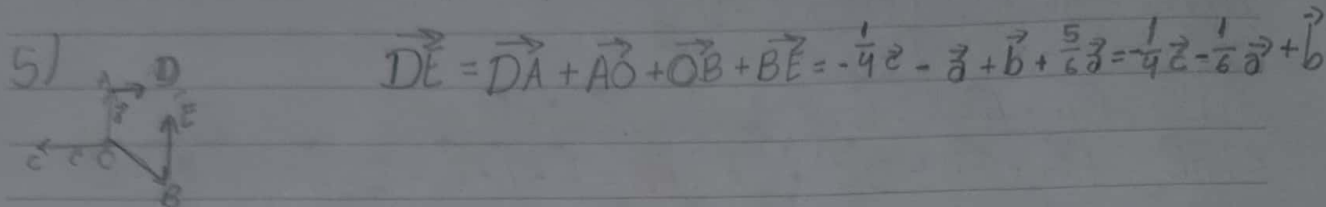 5)
DE⃗ = DA⃗ + AO⃗ + OB⃗ + BE⃗ = -1/4 c⃗ - a⃗ + b⃗ + 5/6 a⃗ = -1/4 c⃗ - 1/6 a⃗ + b⃗
A D
E
c O
B